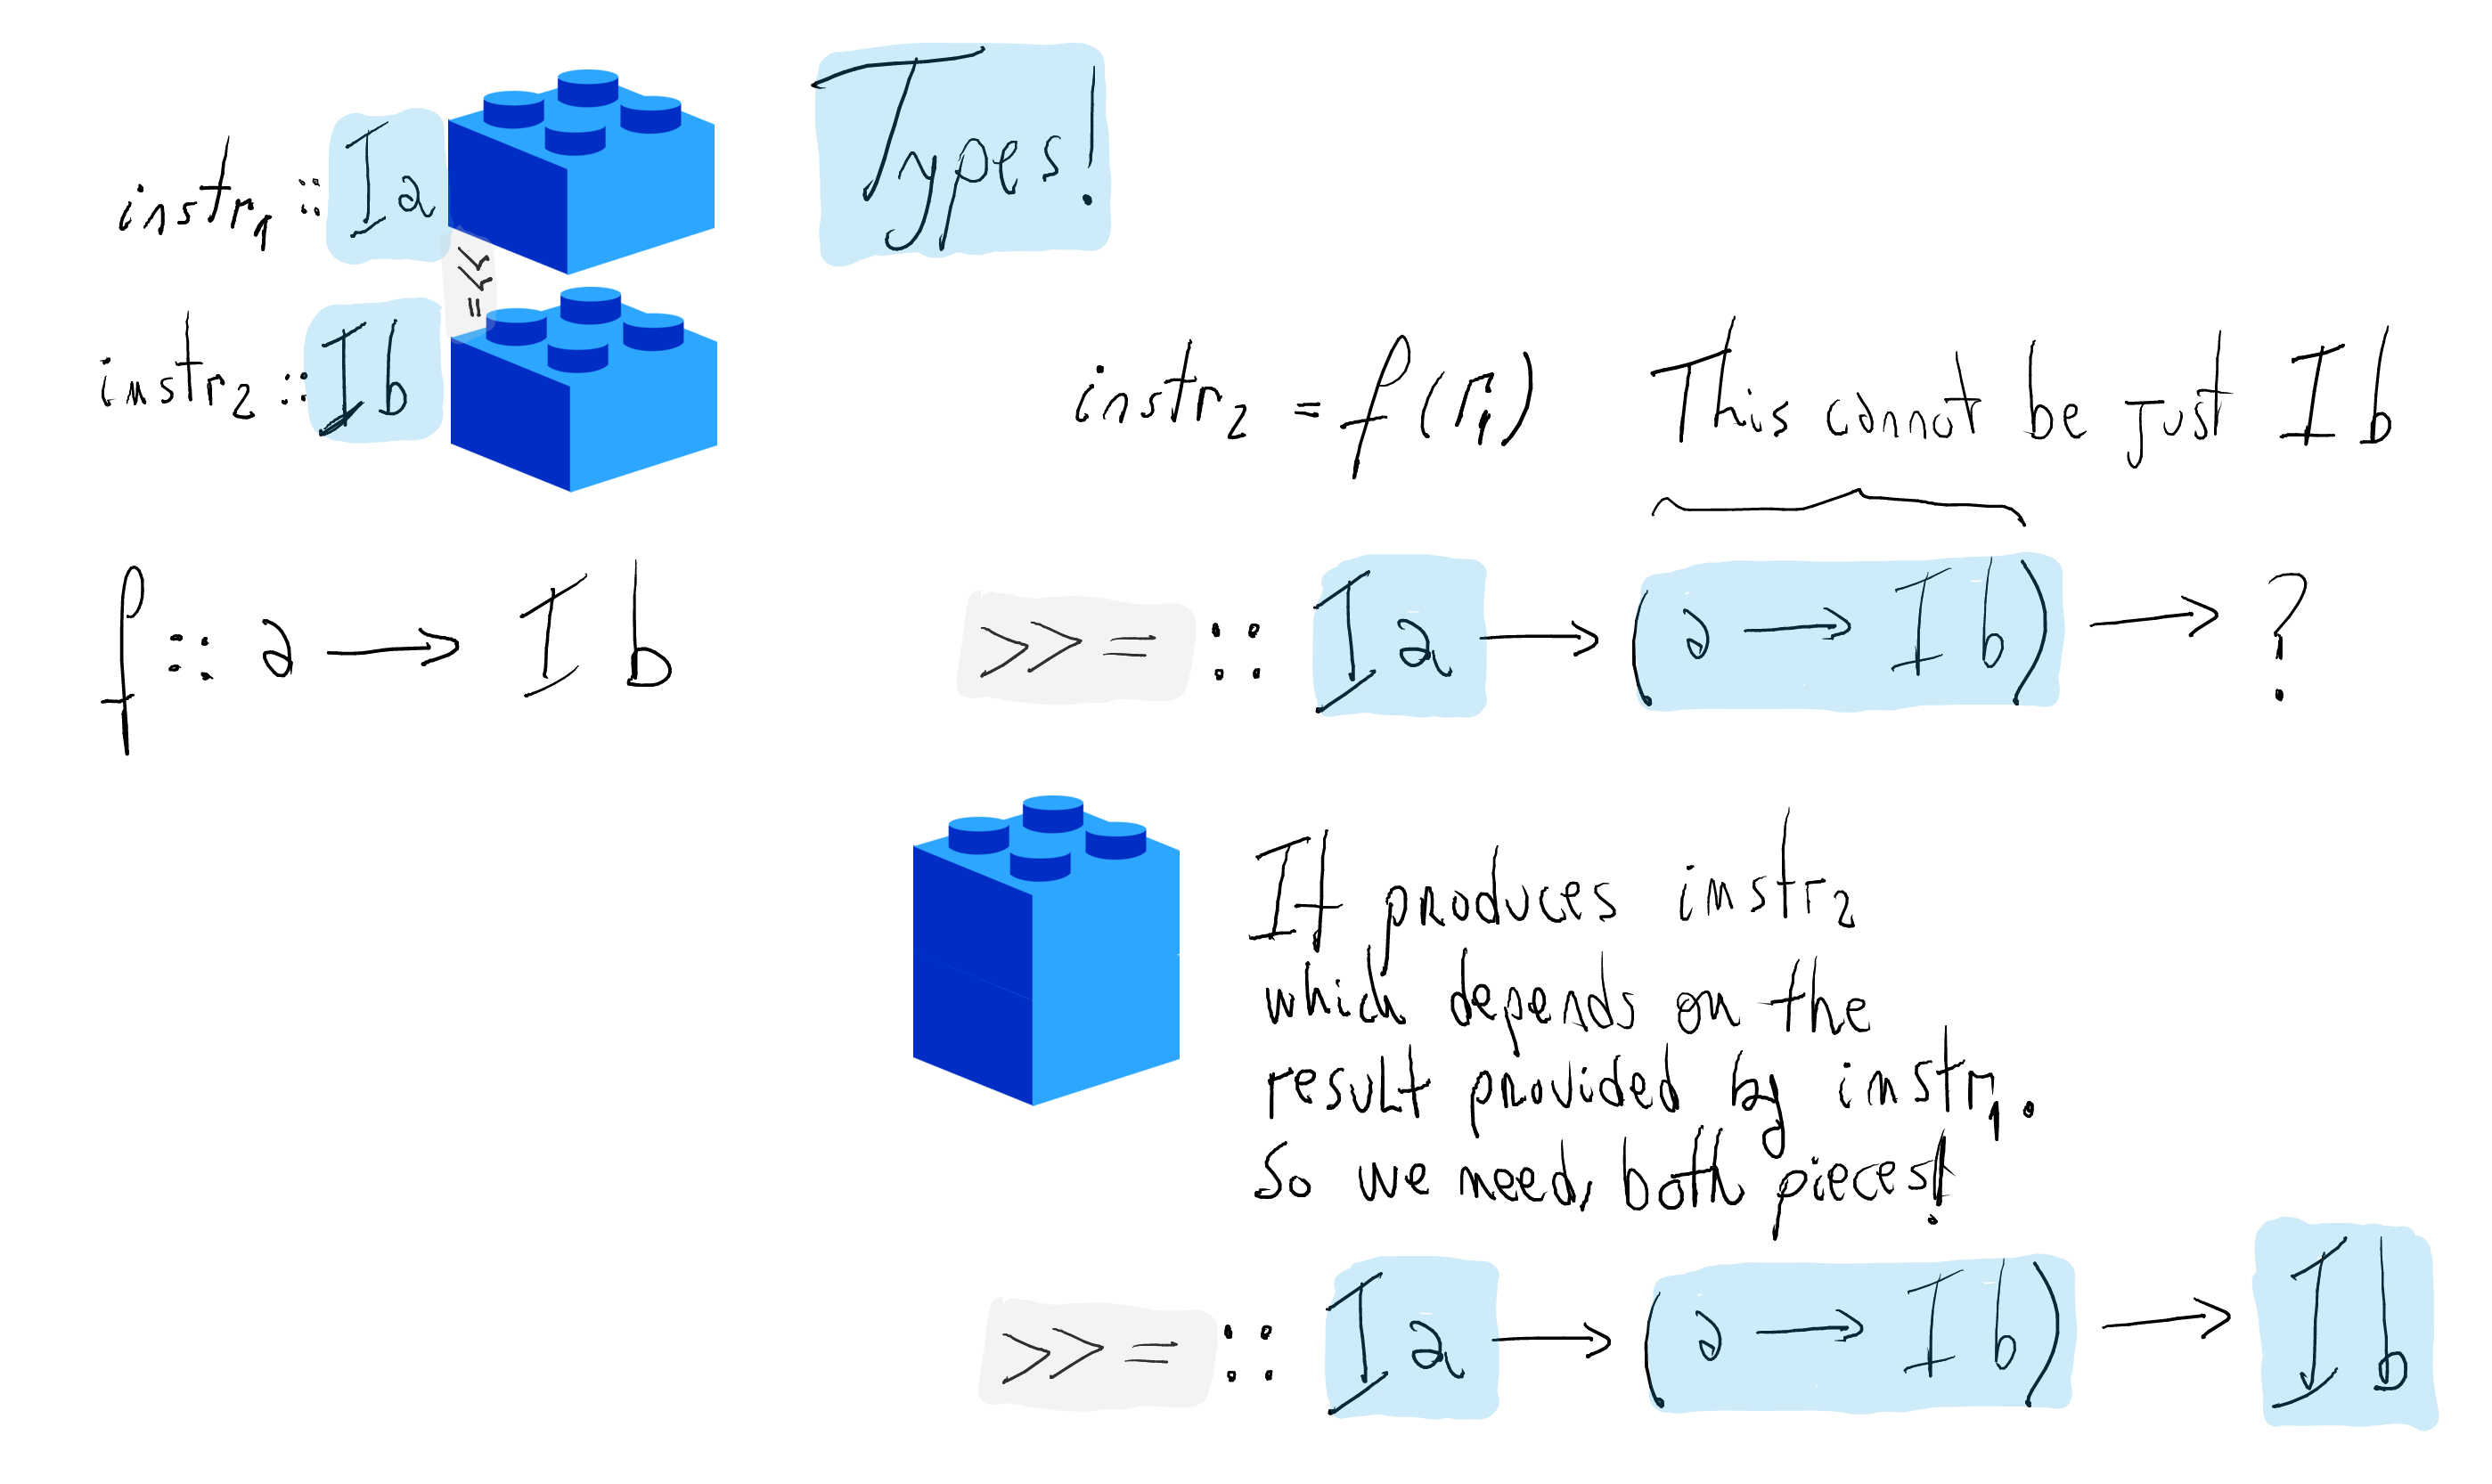 Types!
instr₁ :: I a
>>=
instr₂ :: I b
instr₂ = f(r₁) This cannot be just I b
f :: a → I b
>>= :: I a → (a → I b) → ?
It produces instr₂
which depends on the
result provided by instr₁.
So we need both pieces!
>>= :: I a → (a → I b) → I b